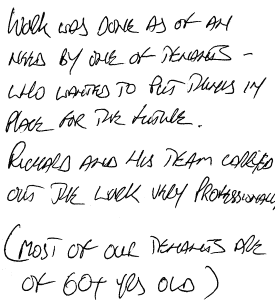 WORK WAS DONE AS OF AN
NEED BY ONE OF TENANTS -
WHO WANTED TO PUT THINGS IN
PLACE FOR THE FUTURE.
RICHARD AND HIS TEAM CARRIED
OUT THE WORK VERY PROFESSIONALLY
(MOST OF OUR TENANTS ARE
OF 60+ YRS OLD)